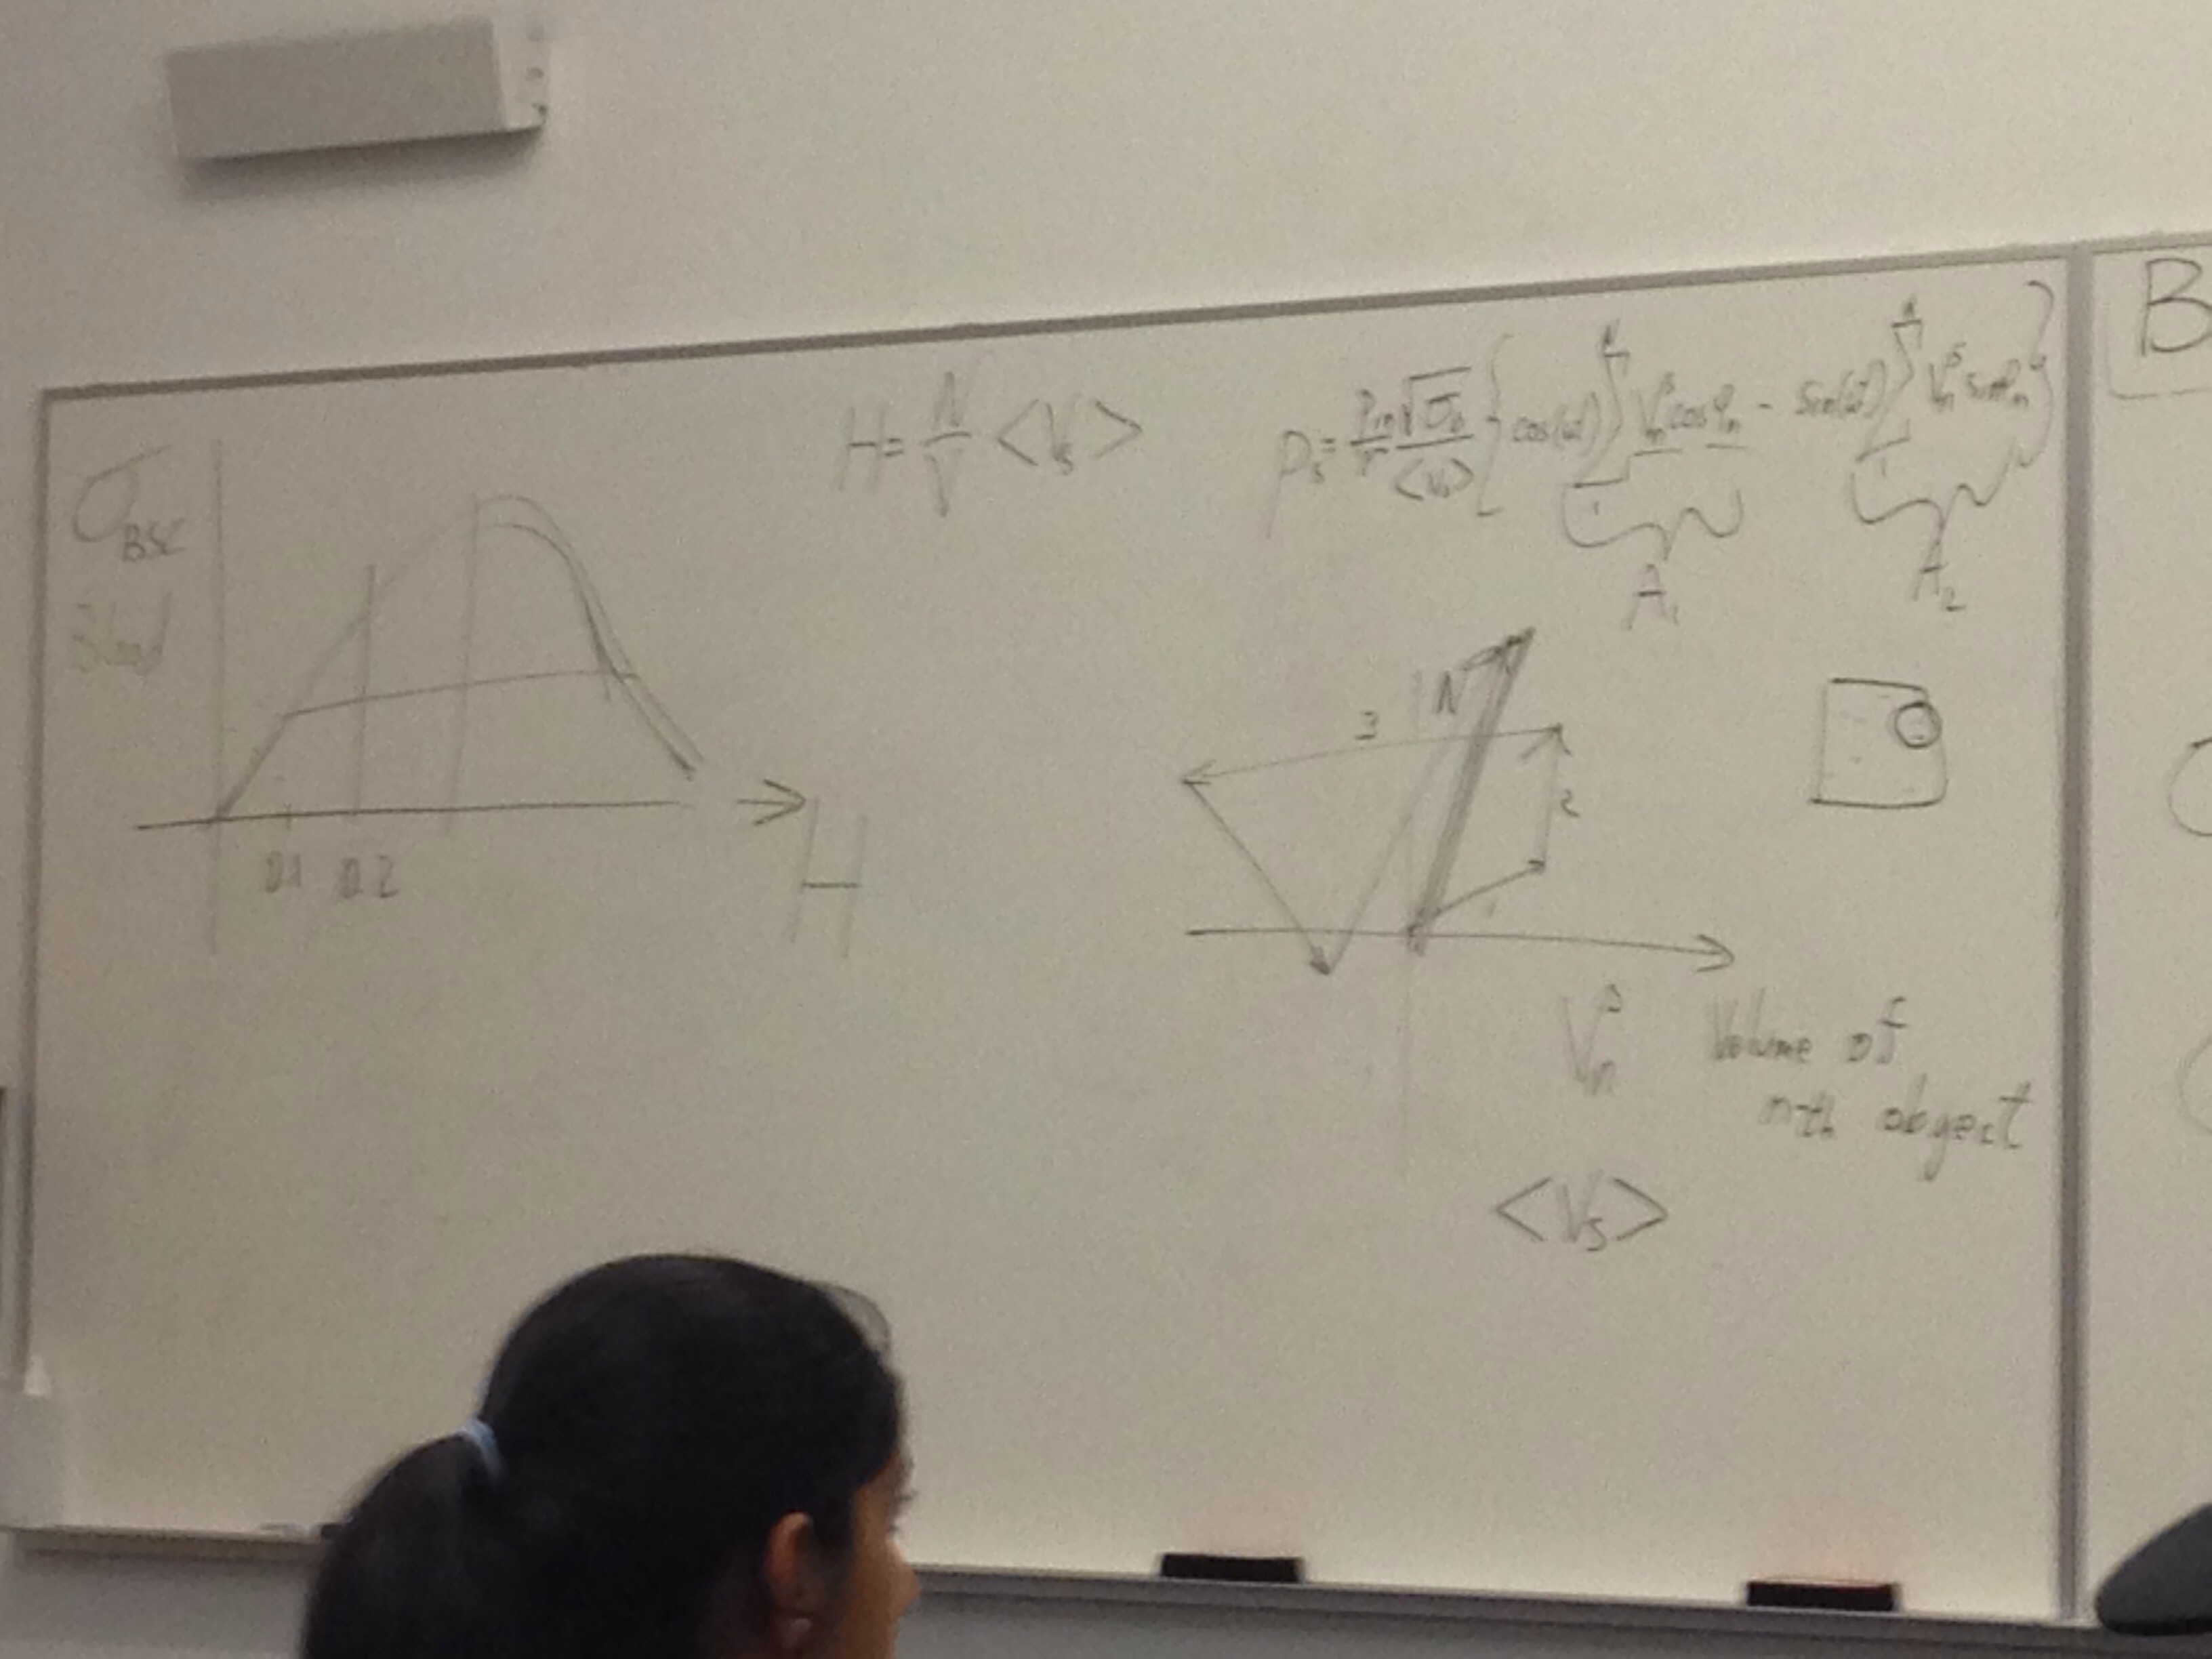 σ_BSC
Blood
0.1 0.2
H
H = N/V <V_s>
p_s = p_in/r √σ_b/<V_s> { cos(ωt) ∑_1^N V_n^s cos φ_n - sin(ωt) ∑_1^N V_n^s sin φ_n }
A_1
A_2
3
N
2
1
V_n^s Volume of
n-th obgect
<V_s>
B